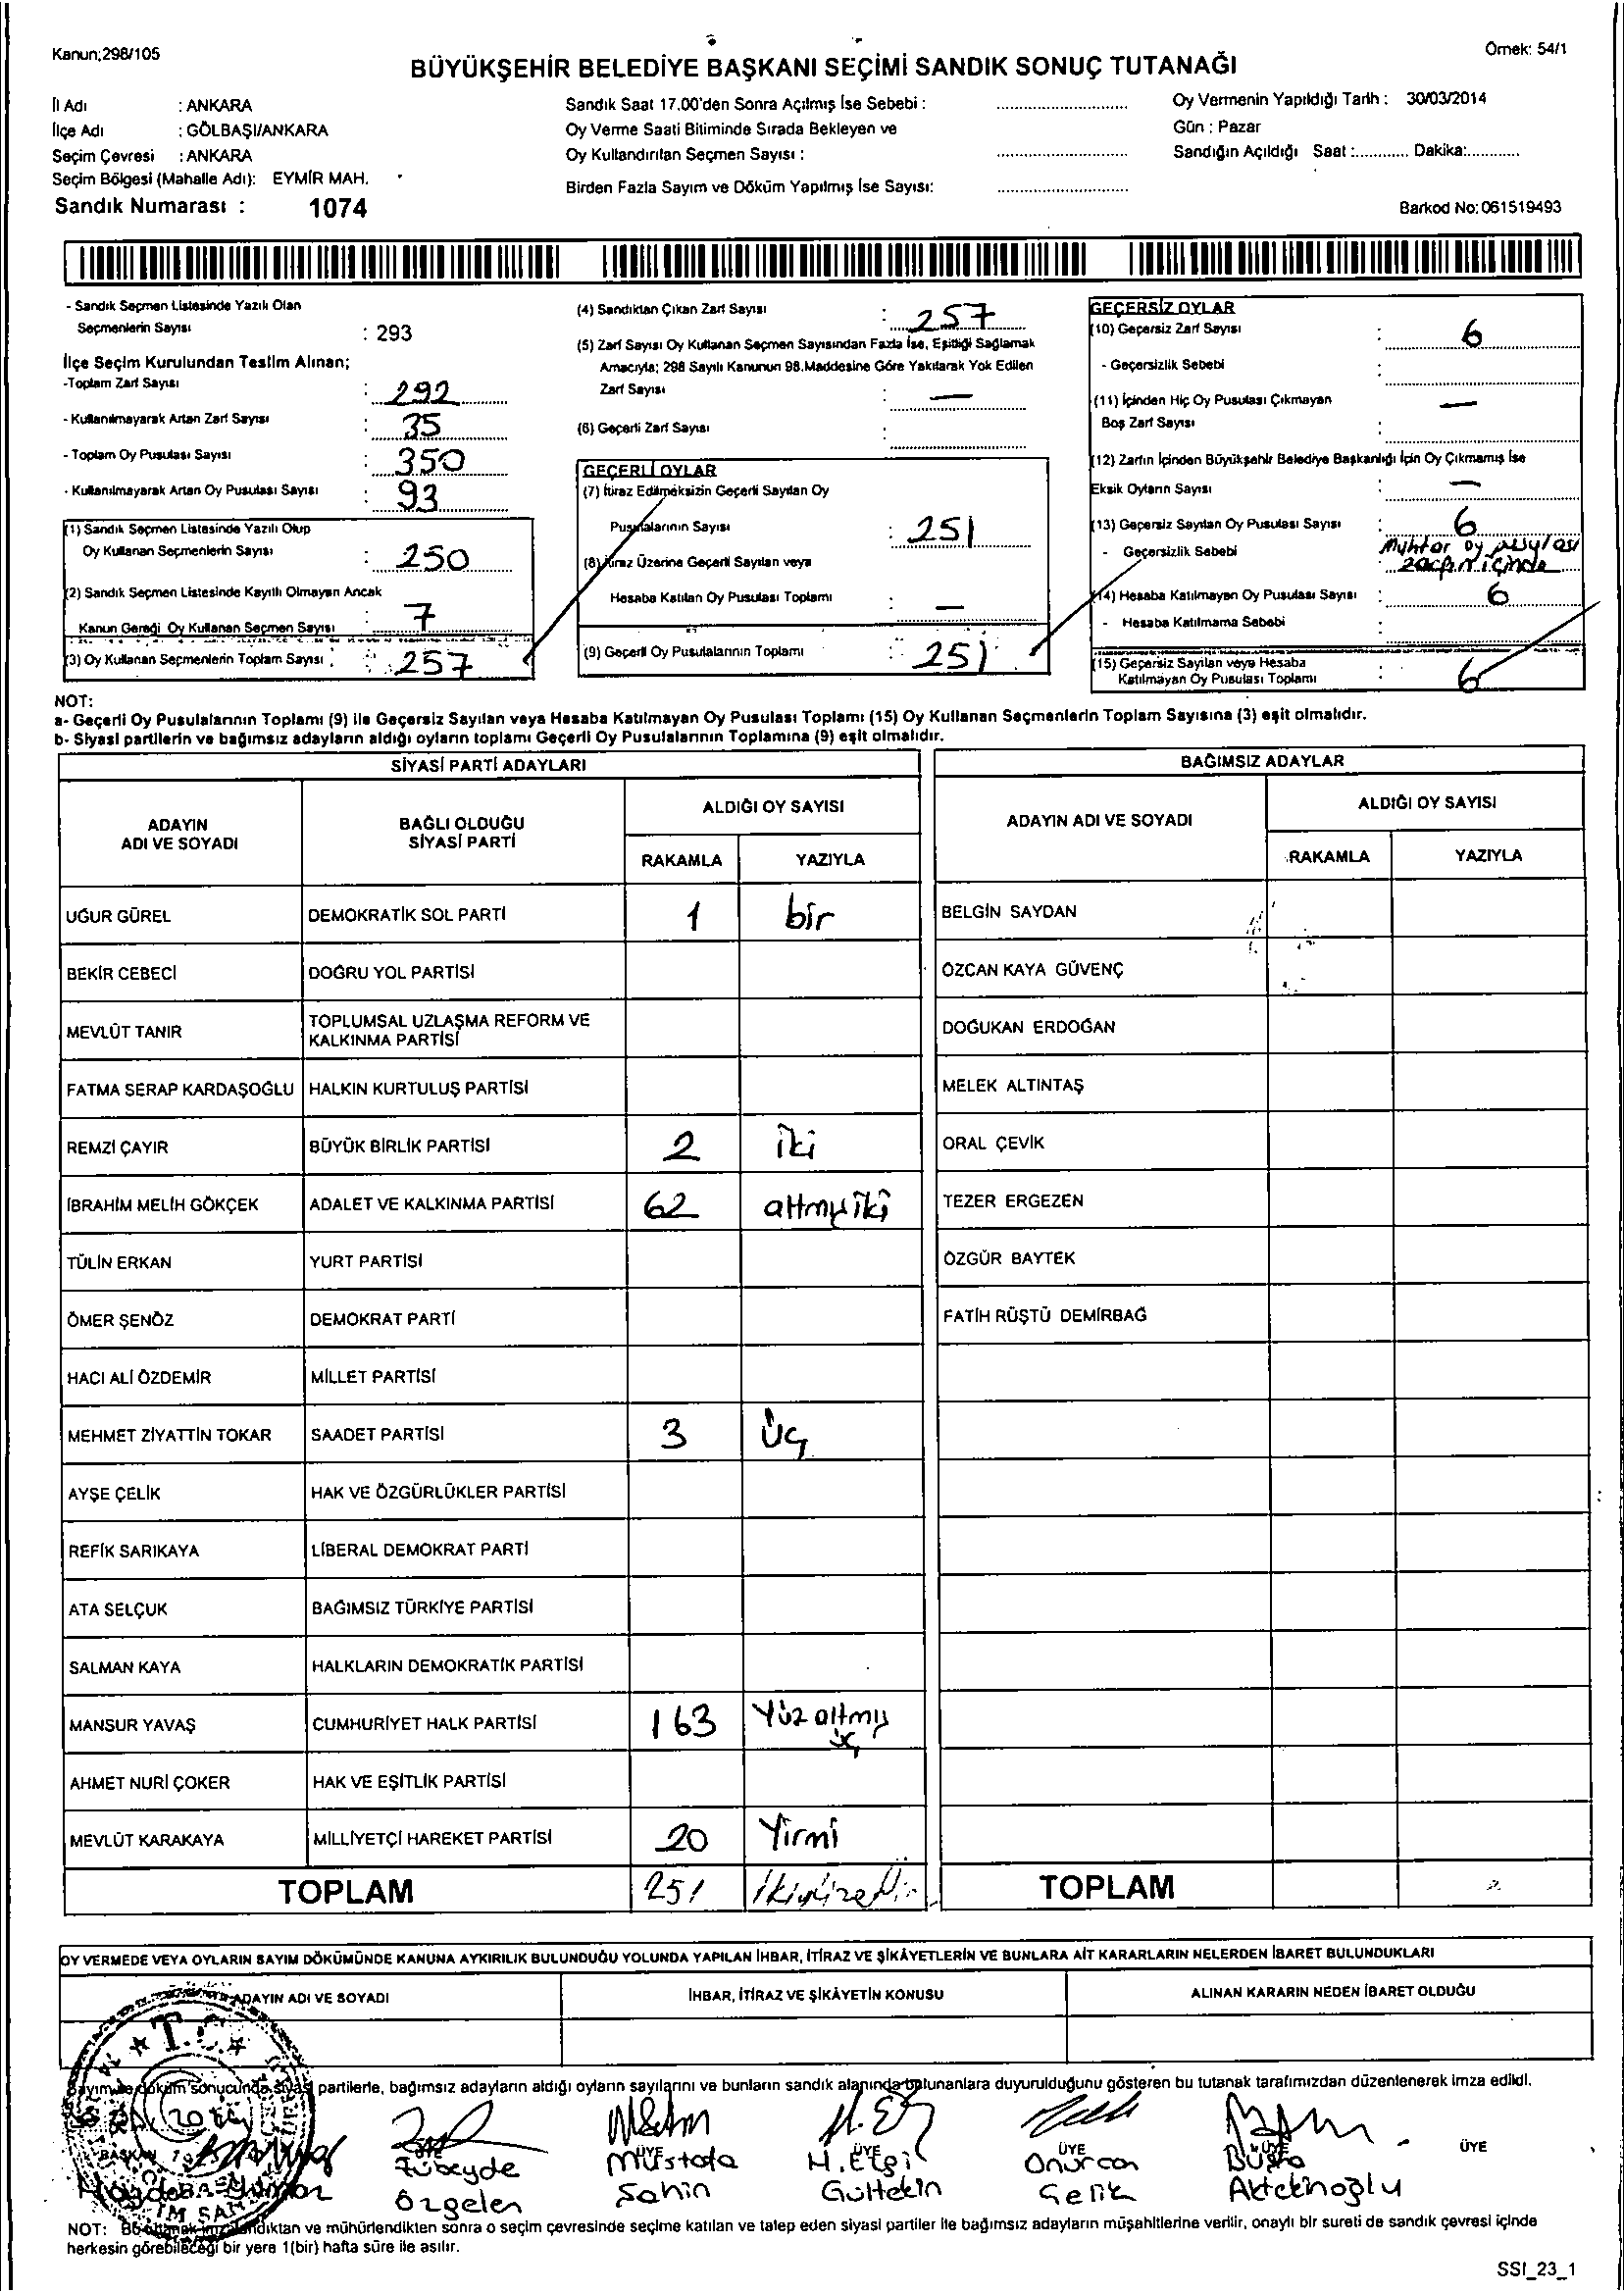 Kanun;298/105
Örnek: 54/1
BÜYÜKŞEHİR BELEDİYE BAŞKANI SEÇİMİ SANDIK SONUÇ TUTANAĞI
İl Adı : ANKARA
İlçe Adı : GÖLBAŞI/ANKARA
Seçim Çevresi : ANKARA
Seçim Bölgesi (Mahalle Adı): EYMİR MAH.
Sandık Numarası : 1074
Sandık Saat 17.00'den Sonra Açılmış İse Sebebi :
Oy Verme Saati Bitiminde Sırada Bekleyen ve
Oy Kullandırılan Seçmen Sayısı :
Birden Fazla Sayım ve Döküm Yapılmış İse Sayısı:
Oy Vermenin Yapıldığı Tarih : 30/03/2014
Gün : Pazar
Sandığın Açıldığı Saat :............ Dakika:...........
Barkod No: 061519493
- Sandık Seçmen Listesinde Yazılı Olan
Seçmenlerin Sayısı : 293
İlçe Seçim Kurulundan Teslim Alınan;
-Toplam Zarf Sayısı : 292
- Kullanılmayarak Artan Zarf Sayısı : 35
- Toplam Oy Pusulası Sayısı : 350
- Kullanılmayarak Artan Oy Pusulası Sayısı : 93
(1) Sandık Seçmen Listesinde Yazılı Olup
Oy Kullanan Seçmenlerin Sayısı : 250
(2) Sandık Seçmen Listesinde Kayıtlı Olmayan Ancak
Kanun Gereği Oy Kullanan Seçmen Sayısı : 7
(3) Oy Kullanan Seçmenlerin Toplam Sayısı : 257
(4) Sandıktan Çıkan Zarf Sayısı : 257
(5) Zarf Sayısı Oy Kullanan Seçmen Sayısından Fazla İse, Eşitliği Sağlamak
Amacıyla; 298 Sayılı Kanunun 98.Maddesine Göre Yakılarak Yok Edilen
Zarf Sayısı : —
(6) Geçerli Zarf Sayısı :
GEÇERLİ OYLAR
(7) İtiraz Edilmeksizin Geçerli Sayılan Oy
Pusulalarının Sayısı : 251
(8) İtiraz Üzerine Geçerli Sayılan veya
Hesaba Katılan Oy Pusulası Toplamı : —
(9) Geçerli Oy Pusulalarının Toplamı : 251
GEÇERSİZ OYLAR
(10) Geçersiz Zarf Sayısı : 6
- Geçersizlik Sebebi :
(11) İçinden Hiç Oy Pusulası Çıkmayan —
Boş Zarf Sayısı :
(12) Zarfın İçinden Büyükşehir Belediye Başkanlığı İçin Oy Çıkmamış İse
Eksik Oyların Sayısı : —
(13) Geçersiz Sayılan Oy Pusulası Sayısı : 6
- Geçersizlik Sebebi : Muhtar oy pusulası
zarfın içinde
(14) Hesaba Katılmayan Oy Pusulası Sayısı : 6
- Hesaba Katılmama Sebebi :
(15) Geçersiz Sayılan veya Hesaba
Katılmayan Oy Pusulası Toplamı : 6
NOT:
a- Geçerli Oy Pusulalarının Toplamı (9) ile Geçersiz Sayılan veya Hesaba Katılmayan Oy Pusulası Toplamı (15) Oy Kullanan Seçmenlerin Toplam Sayısına (3) eşit olmalıdır.
b- Siyasi partilerin ve bağımsız adayların aldığı oyların toplamı Geçerli Oy Pusulalarının Toplamına (9) eşit olmalıdır.
SİYASİ PARTİ ADAYLARI
ADAYIN
ADI VE SOYADI
BAĞLI OLDUĞU
SİYASİ PARTİ
ALDIĞI OY SAYISI
RAKAMLA YAZIYLA
UĞUR GÜREL DEMOKRATİK SOL PARTİ 1 bir
BEKİR CEBECİ DOĞRU YOL PARTİSİ
MEVLÜT TANIR TOPLUMSAL UZLAŞMA REFORM VE
KALKINMA PARTİSİ
FATMA SERAP KARDAŞOĞLU HALKIN KURTULUŞ PARTİSİ
REMZİ ÇAYIR BÜYÜK BİRLİK PARTİSİ 2 iki
İBRAHİM MELİH GÖKÇEK ADALET VE KALKINMA PARTİSİ 62 altmış iki
TÜLİN ERKAN YURT PARTİSİ
ÖMER ŞENÖZ DEMOKRAT PARTİ
HACI ALİ ÖZDEMİR MİLLET PARTİSİ
MEHMET ZİYATTİN TOKAR SAADET PARTİSİ 3 Üç
AYŞE ÇELİK HAK VE ÖZGÜRLÜKLER PARTİSİ
REFİK SARIKAYA LİBERAL DEMOKRAT PARTİ
ATA SELÇUK BAĞIMSIZ TÜRKİYE PARTİSİ
SALMAN KAYA HALKLARIN DEMOKRATİK PARTİSİ
MANSUR YAVAŞ CUMHURİYET HALK PARTİSİ 163 Yüz altmış
üç
AHMET NURİ ÇOKER HAK VE EŞİTLİK PARTİSİ
MEVLÜT KARAKAYA MİLLİYETÇİ HAREKET PARTİSİ 20 Yirmi
TOPLAM 251
BAĞIMSIZ ADAYLAR
ADAYIN ADI VE SOYADI
ALDIĞI OY SAYISI
RAKAMLA YAZIYLA
BELGİN SAYDAN
ÖZCAN KAYA GÜVENÇ
DOĞUKAN ERDOĞAN
MELEK ALTINTAŞ
ORAL ÇEVİK
TEZER ERGEZEN
ÖZGÜR BAYTEK
FATİH RÜŞTÜ DEMİRBAĞ
TOPLAM
OY VERMEDE VEYA OYLARIN SAYIM DÖKÜMÜNDE KANUNA AYKIRILIK BULUNDUĞU YOLUNDA YAPILAN İHBAR, İTİRAZ VE ŞİKÂYETLERİN VE BUNLARA AİT KARARLARIN NELERDEN İBARET BULUNDUKLARI
ADAYIN ADI VE SOYADI
İHBAR, İTİRAZ VE ŞİKÂYETİN KONUSU
ALINAN KARARIN NEDEN İBARET OLDUĞU
T.C.
Sayım ve döküm sonucunda siyasi partilerle, bağımsız adayların aldığı oyların sayılarını ve bunların sandık alanında bulunanlara duyurulduğunu gösteren bu tutanak tarafımızdan düzenlenerek imza edildi.
BAŞKAN ÜYE ÜYE ÜYE ÜYE ÜYE ÜYE
Zübeyde Mustafa H. Ezgi Onurcan Büşra
Özgelen Şahin Gültekin Çelik Aktekinoğlu
NOT: Bu tutanak imzalandıktan ve mühürlendikten sonra o seçim çevresinde seçime katılan ve talep eden siyasi partiler ile bağımsız adayların müşahitlerine verilir, onaylı bir sureti de sandık çevresi içinde
herkesin görebileceği bir yere 1(bir) hafta süre ile asılır.
SSI_23_1